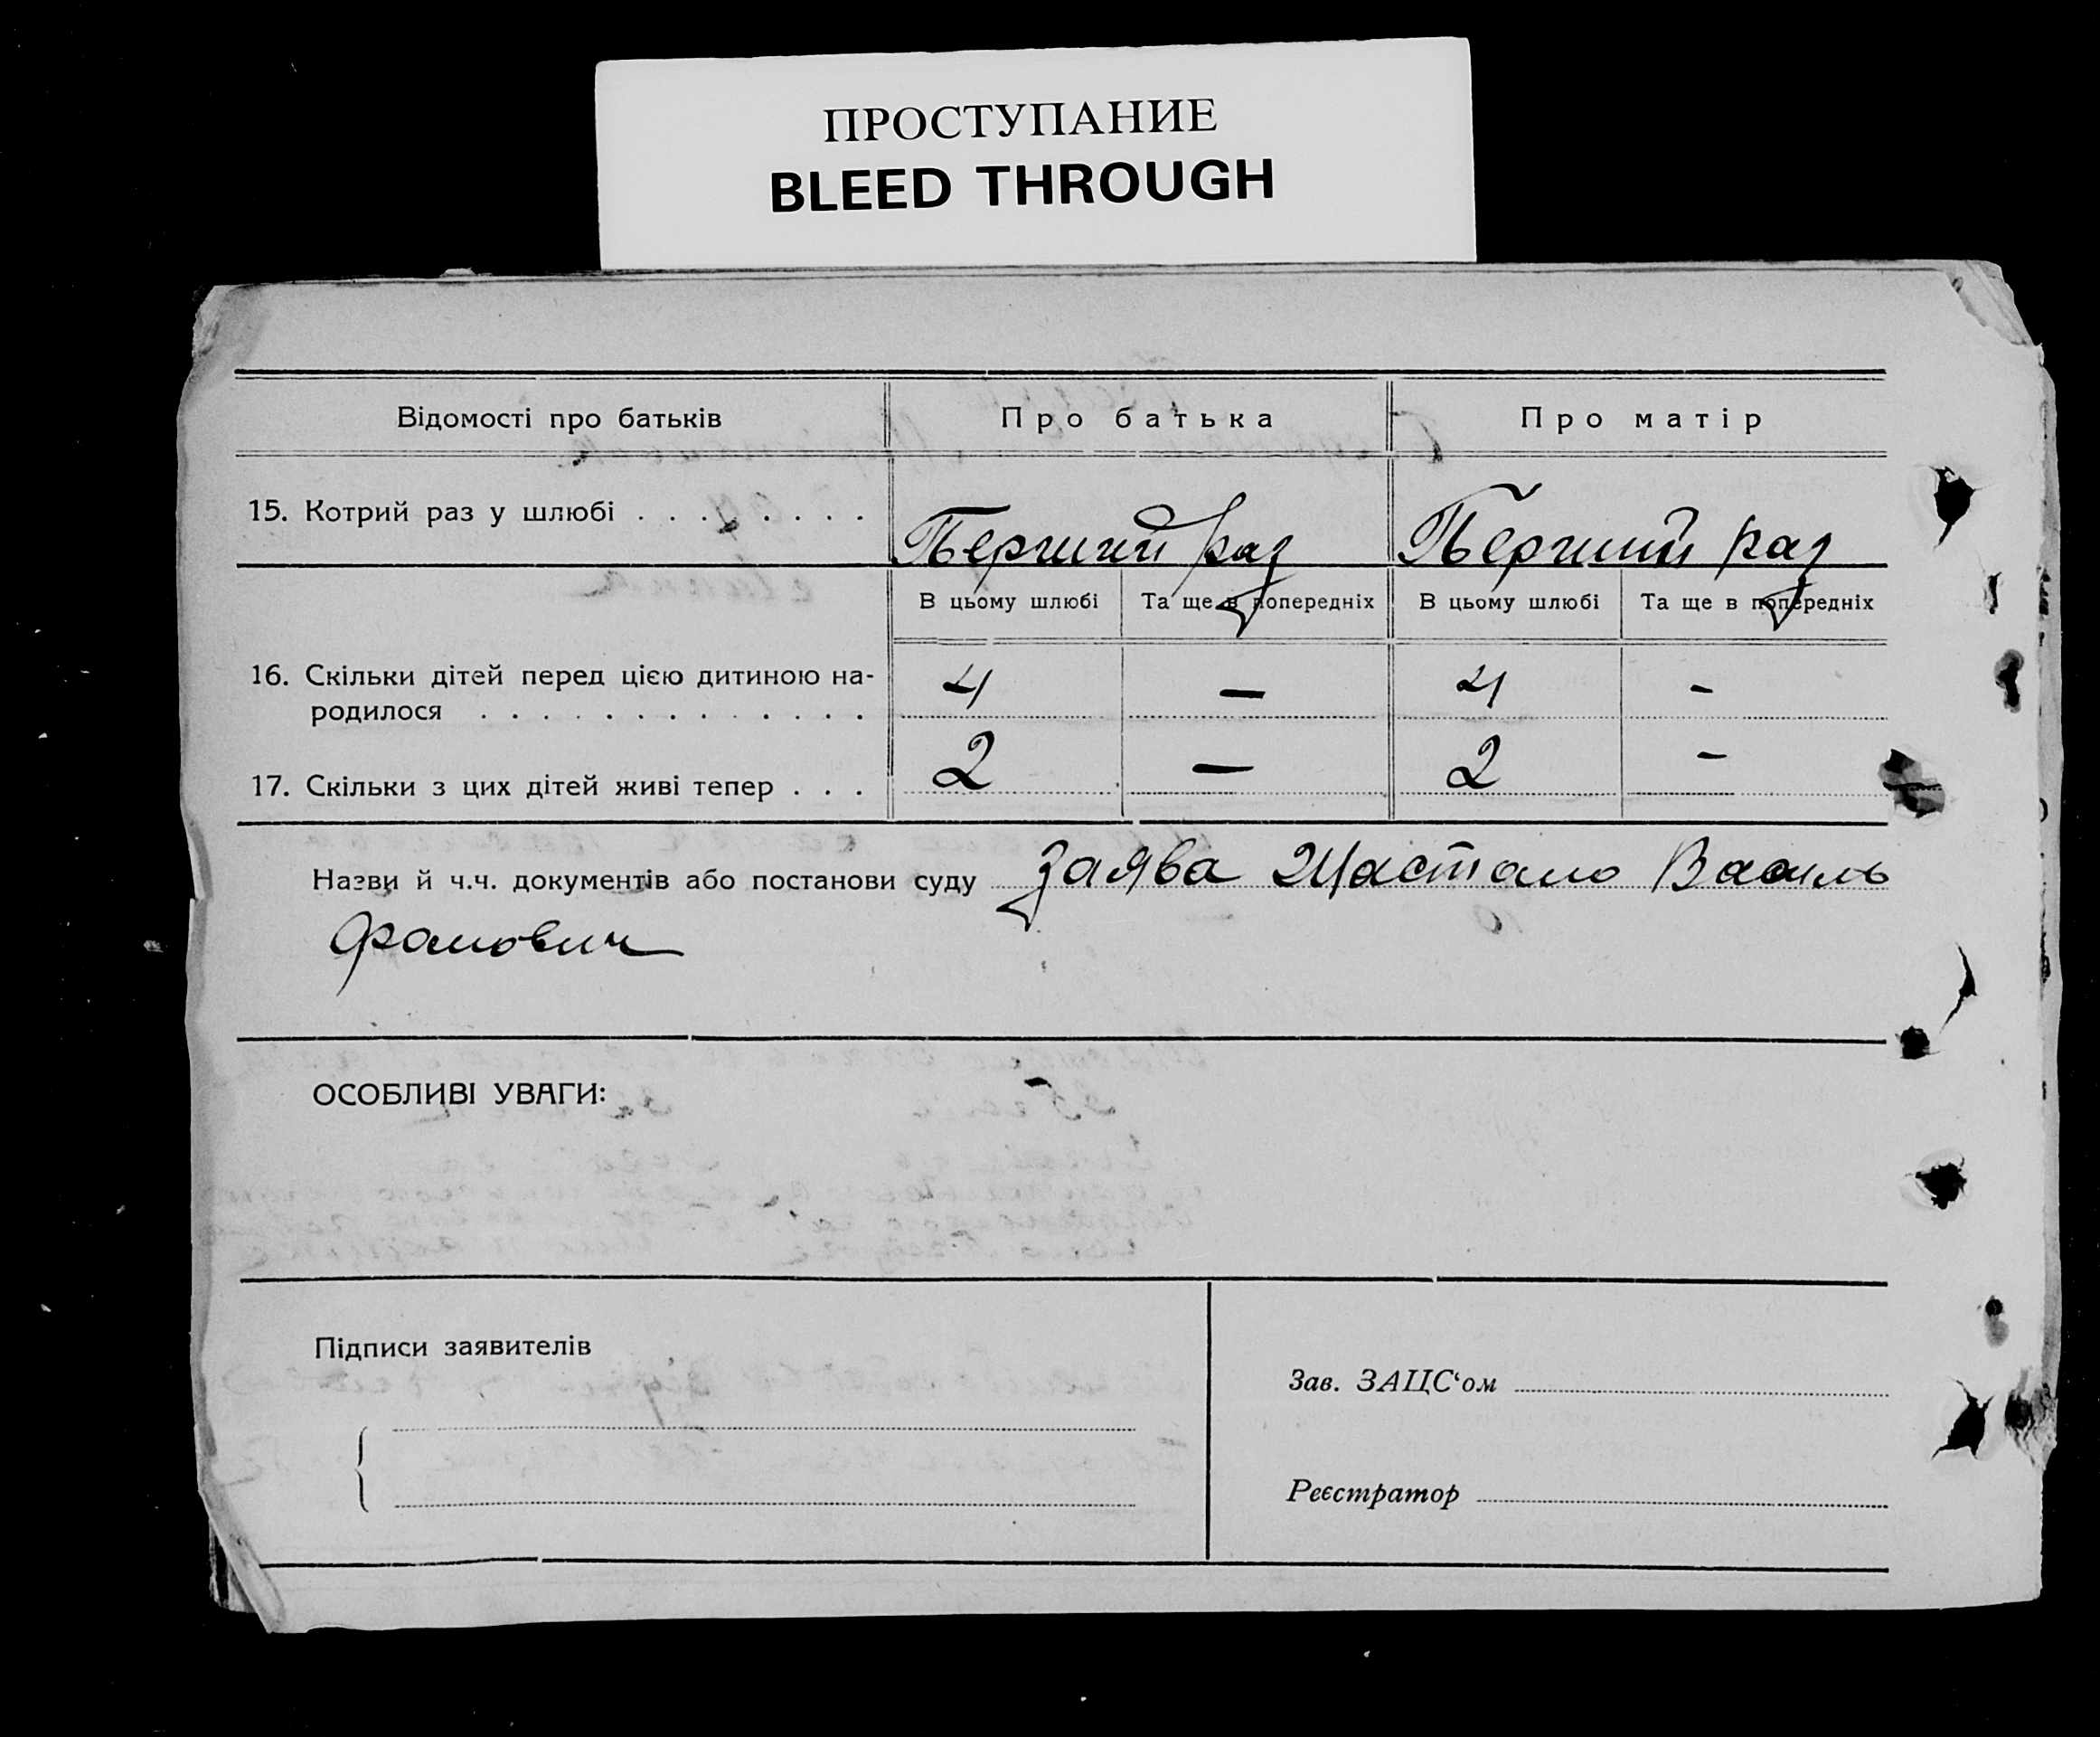 ПРОСТУПАНИЕ
BLEED THROUGH
Відомості про батьків Про батька Про матір
15. Котрий раз у шлюбі . . . . . . . . Перший раз Перший раз
В цьому шлюбі Та ще в попередніх В цьому шлюбі Та ще в попередніх
16. Скільки дітей перед цією дитиною на-
родилося . . . . . . . . . . . . . 4 — 4 –
17. Скільки з цих дітей живі тепер . . . 2 — 2 –
Назви й ч.ч. документів або постанови суду заява Василь
ОСОБЛИВІ УВАГИ:
Підписи заявителів
Зав. ЗАЦС‘ом
Реєстратор